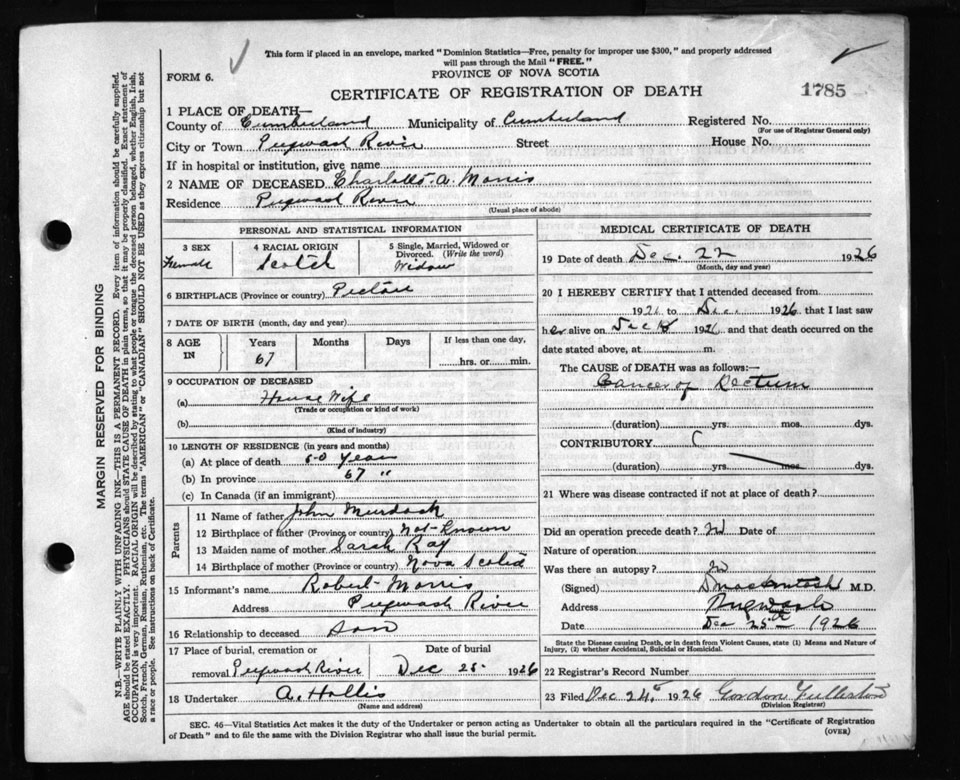 This form if placed in an envelope, marked "Dominion Statistics—Free, penalty for improper use $300," and properly addressed
will pass through the Mail "FREE."
FORM 6.
PROVINCE OF NOVA SCOTIA
CERTIFICATE OF REGISTRATION OF DEATH
1785
1 PLACE OF DEATH—
County of Cumberland Municipality of Cumberland Registered No.
(For use of Registrar General only)
City or Town Pugwash River Street House No.
If in hospital or institution, give name
2 NAME OF DECEASED Charlotte A. Morris
Residence Pugwash River
(Usual place of abode)
PERSONAL AND STATISTICAL INFORMATION
3 SEX 4 RACIAL ORIGIN 5 Single, Married, Widowed or
Divorced. (Write the word)
Female Scotch Widow
6 BIRTHPLACE (Province or country) Pictou
7 DATE OF BIRTH (month, day and year)
8 AGE IN Years Months Days If less than one day,
67 hrs. or min.
9 OCCUPATION OF DECEASED
(a) House Wife
(Trade or occupation or kind of work)
(b)
(Kind of industry)
10 LENGTH OF RESIDENCE (in years and months)
(a) At place of death 50 years
(b) In province 67 "
(c) In Canada (if an immigrant)
Parents
11 Name of father John Murdock
12 Birthplace of father (Province or country) Not Known
13 Maiden name of mother Sarah Ray
14 Birthplace of mother (Province or country) Nova Scotia
15 Informant's name Robert Morris
Address Pugwash River
16 Relationship to deceased Son
17 Place of burial, cremation or Date of burial
removal Pugwash River Dec 25 1926
18 Undertaker A. Hollis
(Name and address)
MEDICAL CERTIFICATE OF DEATH
19 Date of death Dec. 22 1926
(Month, day and year)
20 I HEREBY CERTIFY that I attended deceased from
1926 to Dec. 1926 that I last saw
her alive on Dec 1926 and that death occurred on
date stated above, at m.
The CAUSE of DEATH was as follows:—
Cancer of Rectum
(duration) yrs. mos. dys.
CONTRIBUTORY
(duration) yrs. mos. dys.
21 Where was disease contracted if not at place of death?
Did an operation precede death? No Date of
Nature of operation
Was there an autopsy? No
(Signed) D Mackintosh M.D.
Address Pugwash
Date Dec 25th 1926
State the Disease causing Death, or in death from Violent Causes, state (1) Means and Nature of
Injury, (2) whether Accidental, Suicidal or Homicidal.
22 Registrar's Record Number
23 Filed Dec 24 1926 Gordon Fullerton
(Division Registrar)
SEC. 46—Vital Statistics Act makes it the duty of the Undertaker or person acting as Undertaker to obtain all the particulars required in the "Certificate of Registration
of Death" and to file the same with the Division Registrar who shall issue the burial permit.
(OVER)
MARGIN RESERVED FOR BINDING
N.B.—WRITE PLAINLY WITH UNFADING INK—THIS IS A PERMANENT RECORD. Every item of information should be carefully supplied.
AGE should be stated EXACTLY. PHYSICIANS should STATE CAUSE OF DEATH in plain terms, so that it may be properly classified. Exact statement of
OCCUPATION is very important. RACIAL ORIGIN will be described by stating to what people or tongue the deceased person belonged, whether English, Irish,
Scotch, French, German, Russian, Ruthenian, etc. The terms "AMERICAN" or "CANADIAN" SHOULD NOT BE USED as they express citizenship but not
a race or people. See instructions on back of Certificate.